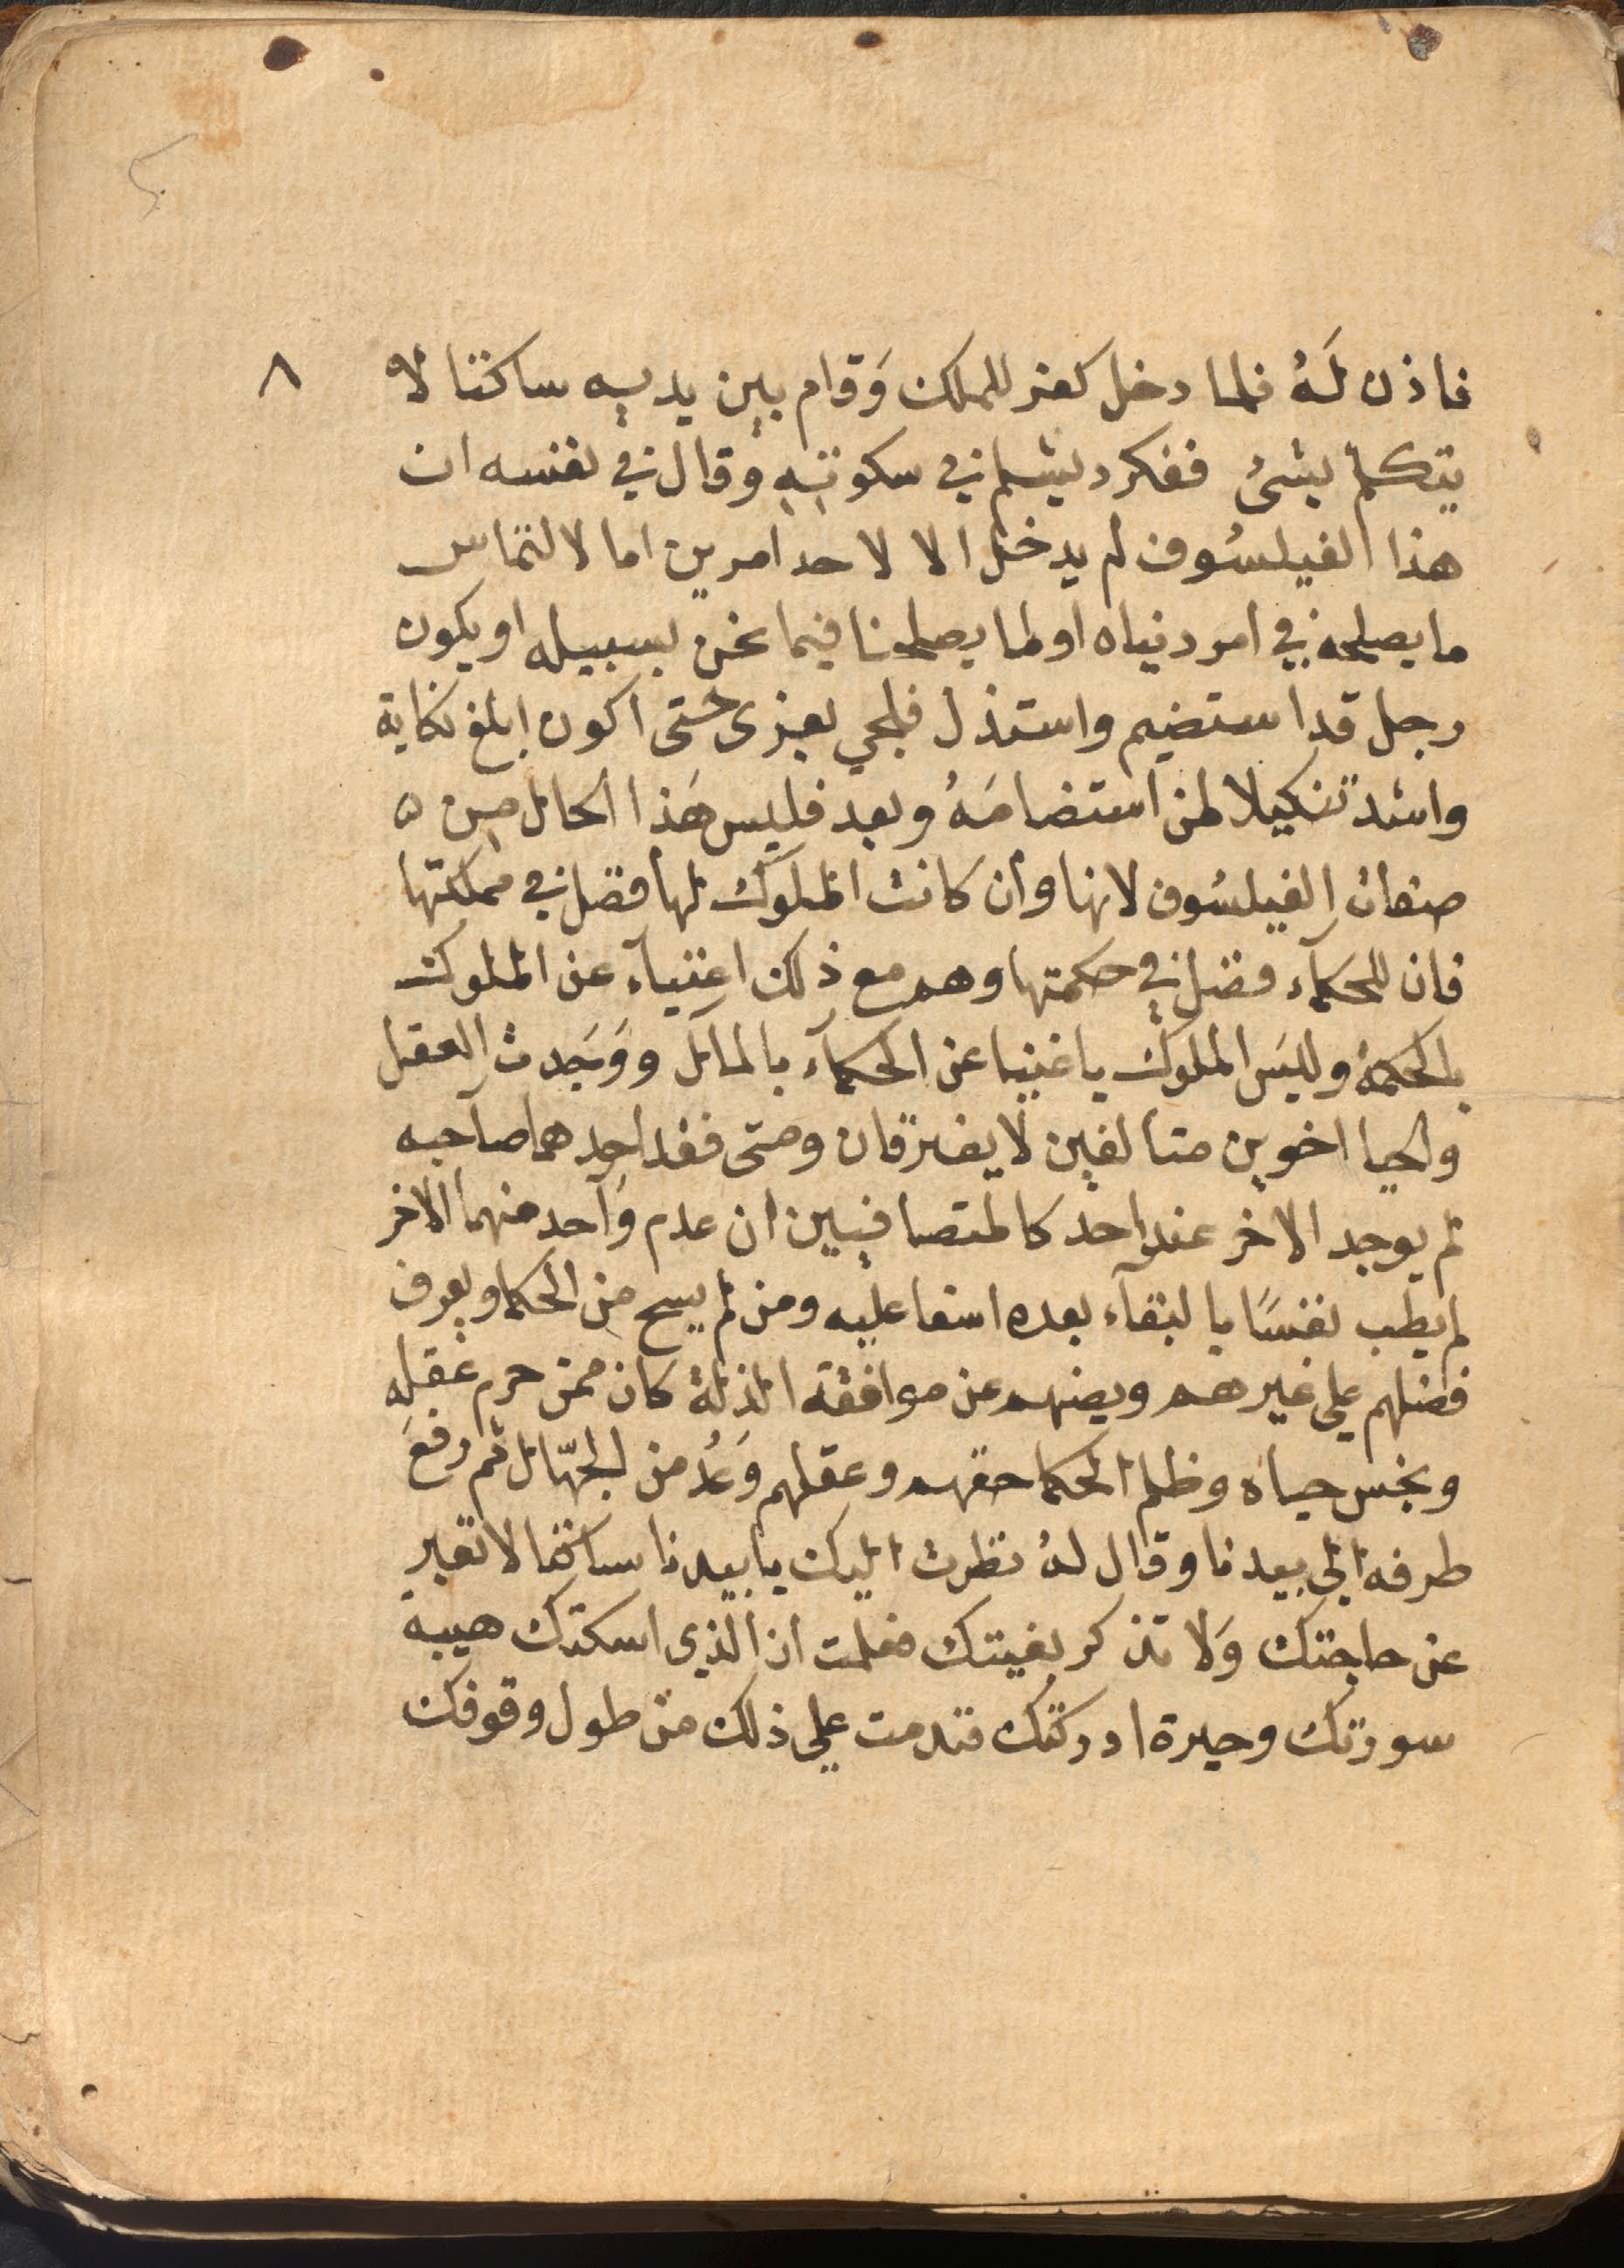 ٨
فاذن لَهُ فلما دخل كفر للملك وَقام بين يديه ساكتا لا
يتكلم بشئ ففكر ديشلم في سكوتهِ وقال في نفسه ان
هذا الفيلسُوف لم يدخل الا لاحد امرين اما لالتماس
ما يصلحه في امر دنياه او لما يصلحنا فيما نحن بسبيله او يكون
رجل قد استضيم واستذل فلجي بعزى حتى اكون ابلغ نكاية
واشد تنكيلا لمن استضامَهُ وبعد فليس هَذا الحال من
صفات الفيلسُوف لانها وان كانت الملوك لها فضل في مملكتها
فان للحكمآء فضل في حكمتها وهم مع ذلك اغنيآء عن الملوك
بالحكمة وليسَ الملوك باغنيا عن الحكمآء بالمال ووَجَدت العقل
والحيا اخوين متالفين لا يفترقان ومتى فقد احدهما صاحبه
لم يوجد الاخر عند احد كالمتصافيين ان عدم وَاحد منهما الاخر
لم يطب نفسًا بالبقآء بعده اسفا عليه ومن لم يسح من الحكما ويعرف
فضلهم على غيرهم ويصنهم عن موافقة المذلة كان ممن حرم عقله
وبخس حياه وظلم الحكما حقهم وعقلهم وَعُد من الجهّال ثم رفعَ
طرفه الى بيدنا وقال لهُ نظرت اليك يا بيدنا ساكتا لا تعبر
عن حاجتك وَلا تذكر بغيتك فقلت ان الذي اسكتك هيبة
سورتك وحيرة ادركتك فتدمت على ذلك من طول وقوفك